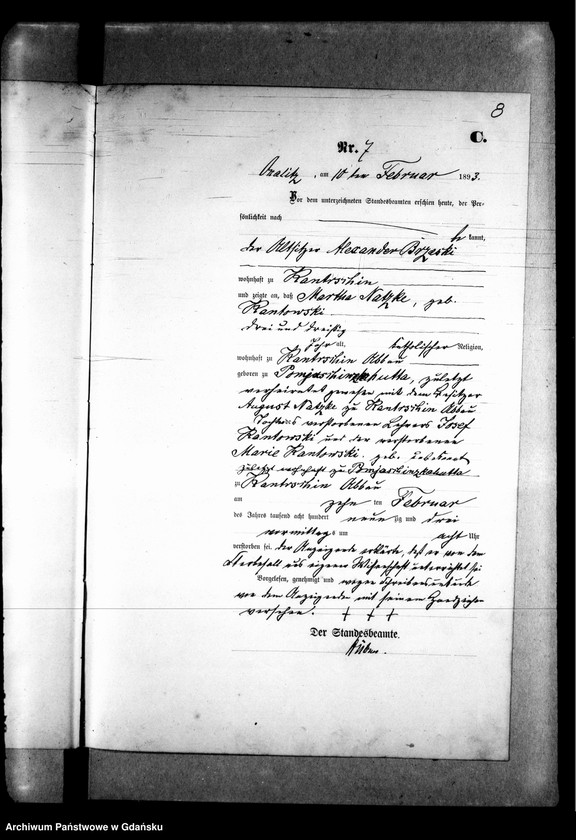 8
C.
Nr. 7
Occalitz, am 10 ten Februar 1893.
Vor dem unterzeichneten Standesbeamten erschien heute, der Per-
sönlichkeit nach
be kannt,
der Altsitzer Alexander Brzeski
wohnhaft zu Kantrschin
und zeigte an, daß Martha Natzke, geb.
Kantowski
drei und dreißig
Jahr alt, katholischer Religion,
wohnhaft zu Kantrschin Abbau
geboren zu Pomjeschinzkahutta, zuletzt
verheiratet gewesen mit dem Besitzer
August Natzke zu Kantrschin Abbau
Tochter des verstorbenen Lehrers Josef
Kantowski und der verstorbenen
Marie Kantowski geb.
zuletzt wohnhaft zu Pomjeschinzkahutta
zu Kantrschin Abbau
am zehn ten Februar
des Jahres tausend acht hundert neun zig und drei
vormittags um acht Uhr
verstorben sei. der Anzeigende erklärte, daß er von dem
Sterbefall aus eigener Wissenschaft unterrichtet sei
Vorgelesen, genehmigt und wegen Schreibensunkunde
von dem Anzeigenden mit seinem Handzeichen
versehen. + + +
Der Standesbeamte.
Archiwum Państwowe w Gdańsku